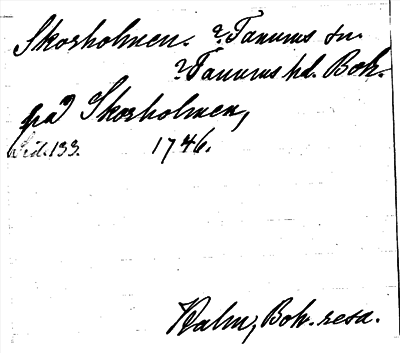 Skorholmen. ?Tanums sn.
?Tanums hd. Boh.
på Skorholmen,
Sid. 133. 1746.
Kalm, Boh. resa.